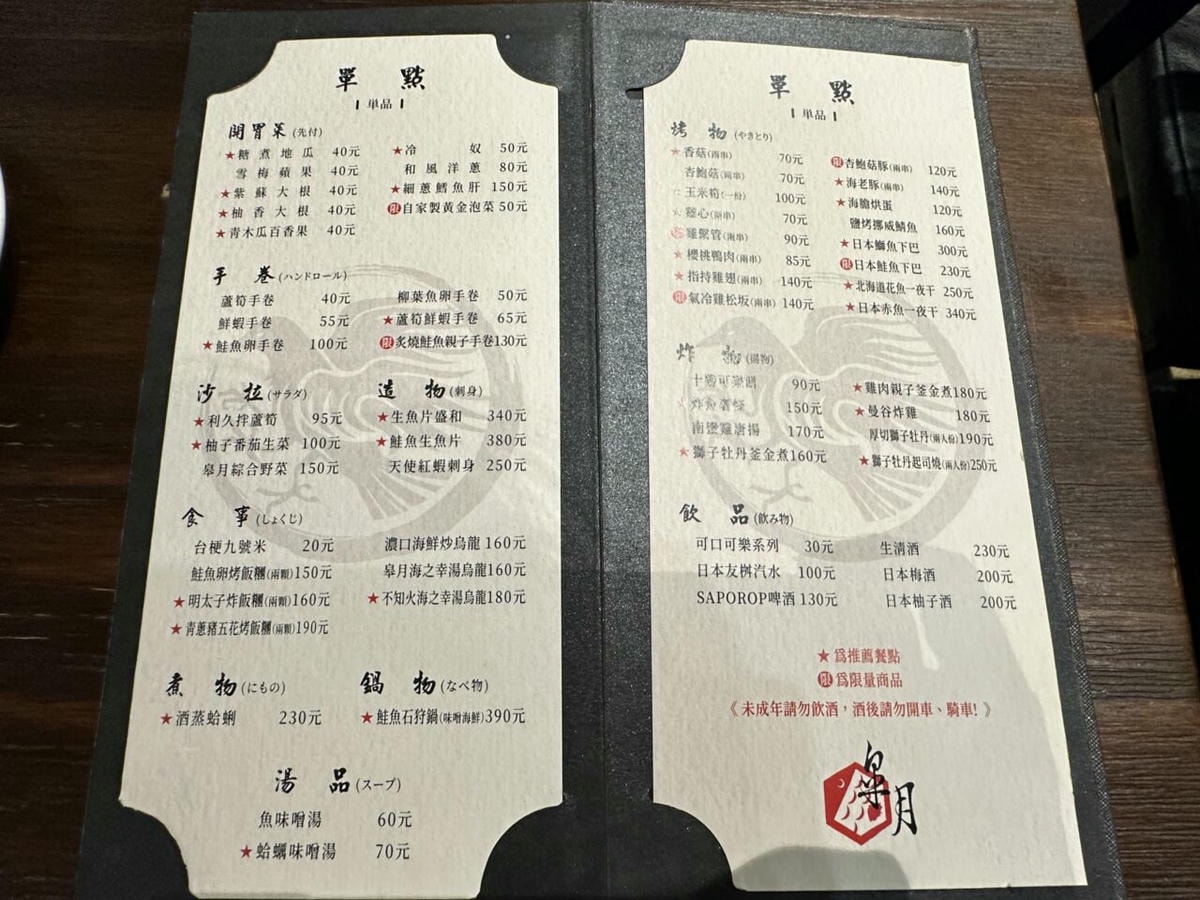 單點
単品
開胃菜(先付)
★糖煮地瓜 40元
雪梅蘋果 40元
★紫蘇大根 40元
★柚香大根 40元
★青木瓜百香果 40元
★冷奴 50元
和風洋蔥 80元
★細蔥鱈魚肝 150元
限自家製黃金泡菜 50元
手卷(ハンドロール)
蘆筍手卷 40元
鮮蝦手卷 55元
★鮭魚卵手卷 100元
柳葉魚卵手卷 50元
★蘆筍鮮蝦手卷 65元
限炙燒鮭魚親子手卷130元
沙拉(サラダ)
★利久拌蘆筍 95元
★柚子番茄生菜 100元
皋月綜合野菜 150元
造物(刺身)
★生魚片盛和 340元
★鮭魚生魚片 380元
天使紅蝦刺身 250元
食事(しょくじ)
台梗九號米 20元
鮭魚卵烤飯糰(兩顆)150元
★明太子炸飯糰(兩顆)160元
★青蔥豬五花烤飯糰(兩顆)190元
濃口海鮮炒烏龍 160元
皋月海之幸湯烏龍160元
★不知火海之幸湯烏龍180元
煮物(にもの)
★酒蒸蛤蜊 230元
鍋物(なべ物)
★鮭魚石狩鍋(味噌海鮮)390元
湯品(スープ)
魚味噌湯 60元
★蛤蠣味噌湯 70元
單點
単品
烤物(やきとり)
★香菇(兩串) 70元
杏鮑菇(兩串) 70元
玉米筍(一份) 100元
★雞心(兩串) 70元
限雞緊管(兩串) 90元
★櫻桃鴨肉(兩串) 85元
★指持雞翅(兩串) 140元
限氣冷雞松坂(兩串) 140元
限杏鮑菇豚(兩串) 120元
★海老豚(兩串) 140元
★海膽烘蛋 120元
鹽烤挪威鯖魚 160元
★日本鰤魚下巴 300元
限日本鮭魚下巴 230元
★北海道花魚一夜干 250元
★日本赤魚一夜干 340元
炸物(揚物)
十勝可樂餅 90元
炸魚薯條 150元
南蠻雞唐揚 170元
★獅子牡丹釜金煮160元
★雞肉親子釜金煮180元
★曼谷炸雞 180元
厚切獅子牡丹(兩人份)190元
★獅子牡丹起司燒(兩人份)250元
飲品(飲み物)
可口可樂系列 30元
日本友桝汽水 100元
SAPOROP啤酒 130元
生清酒 230元
日本梅酒 200元
日本柚子酒 200元
★為推薦餐點
限為限量商品
《未成年請勿飲酒，酒後請勿開車、騎車!》
皋月